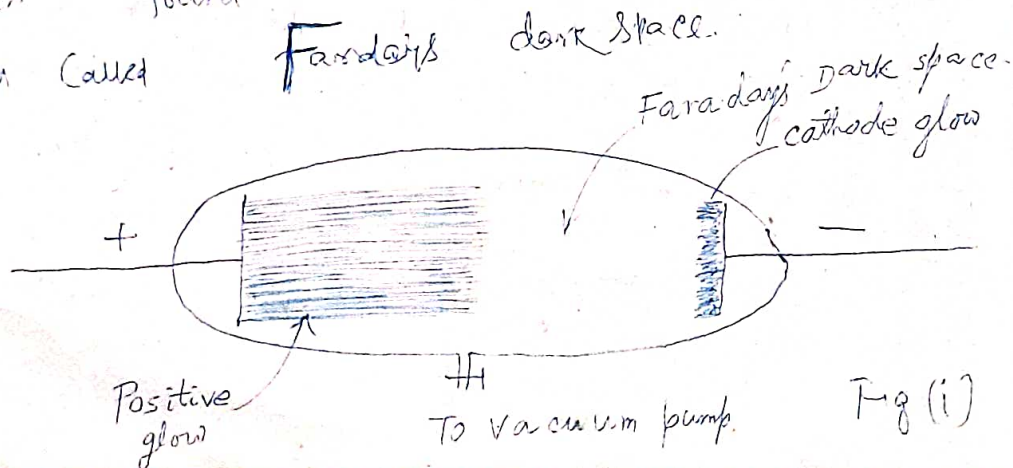 Called Fardays dark space.
Faraday's Dark space.
cathode glow
+
−
Positive
glow
To vacuum pump.
Fig (i)